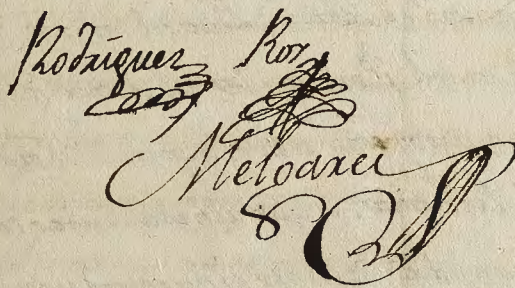 Rodriguez Ros
Meloarei